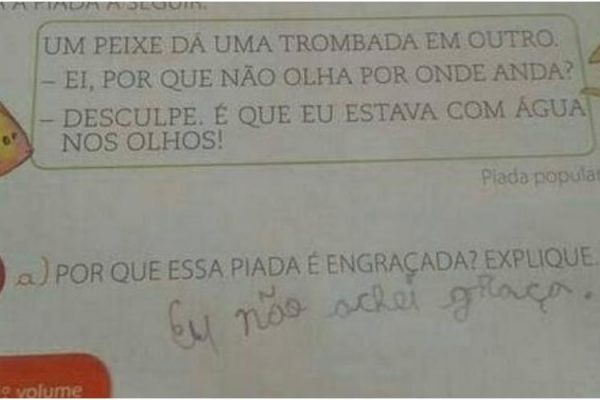 A PIADA A SEGUIR.
UM PEIXE DÁ UMA TROMBADA EM OUTRO.
– EI, POR QUE NÃO OLHA POR ONDE ANDA?
– DESCULPE. É QUE EU ESTAVA COM ÁGUA
NOS OLHOS!
Piada popular
a) POR QUE ESSA PIADA É ENGRAÇADA? EXPLIQUE.
Eu não achei graça.
volume